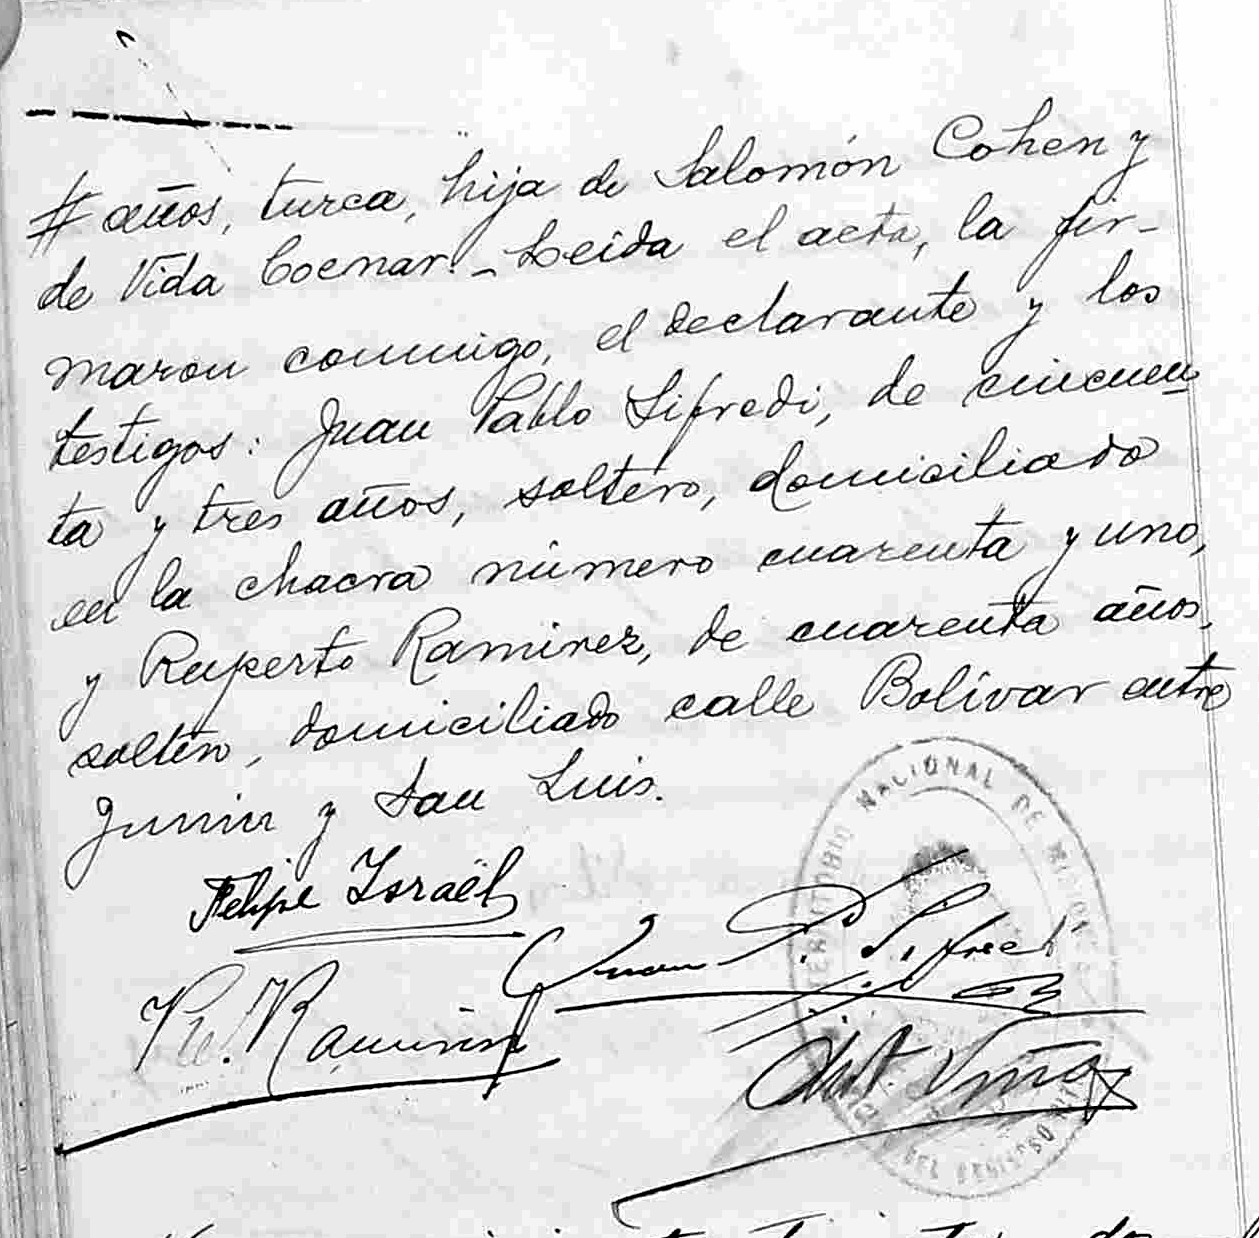 # años, turca, hija de Salomón Cohen y
de Vida Coenar. - Leida el acta, la fir-
maron conmigo, el declarante y los
testigos: Juan Pablo Sifredi, de cincuen-
ta y tres años, soltero, domiciliado
en la chacra número cuarenta y uno,
y Ruperto Ramirez, de cuarenta años,
soltero, domiciliado calle Bolívar entre
Junin y San Luis.
Felipe Israël
Juan P. Sifredi
Ru. Ramirez
TERRITORIO NACIONAL DE MISIONES